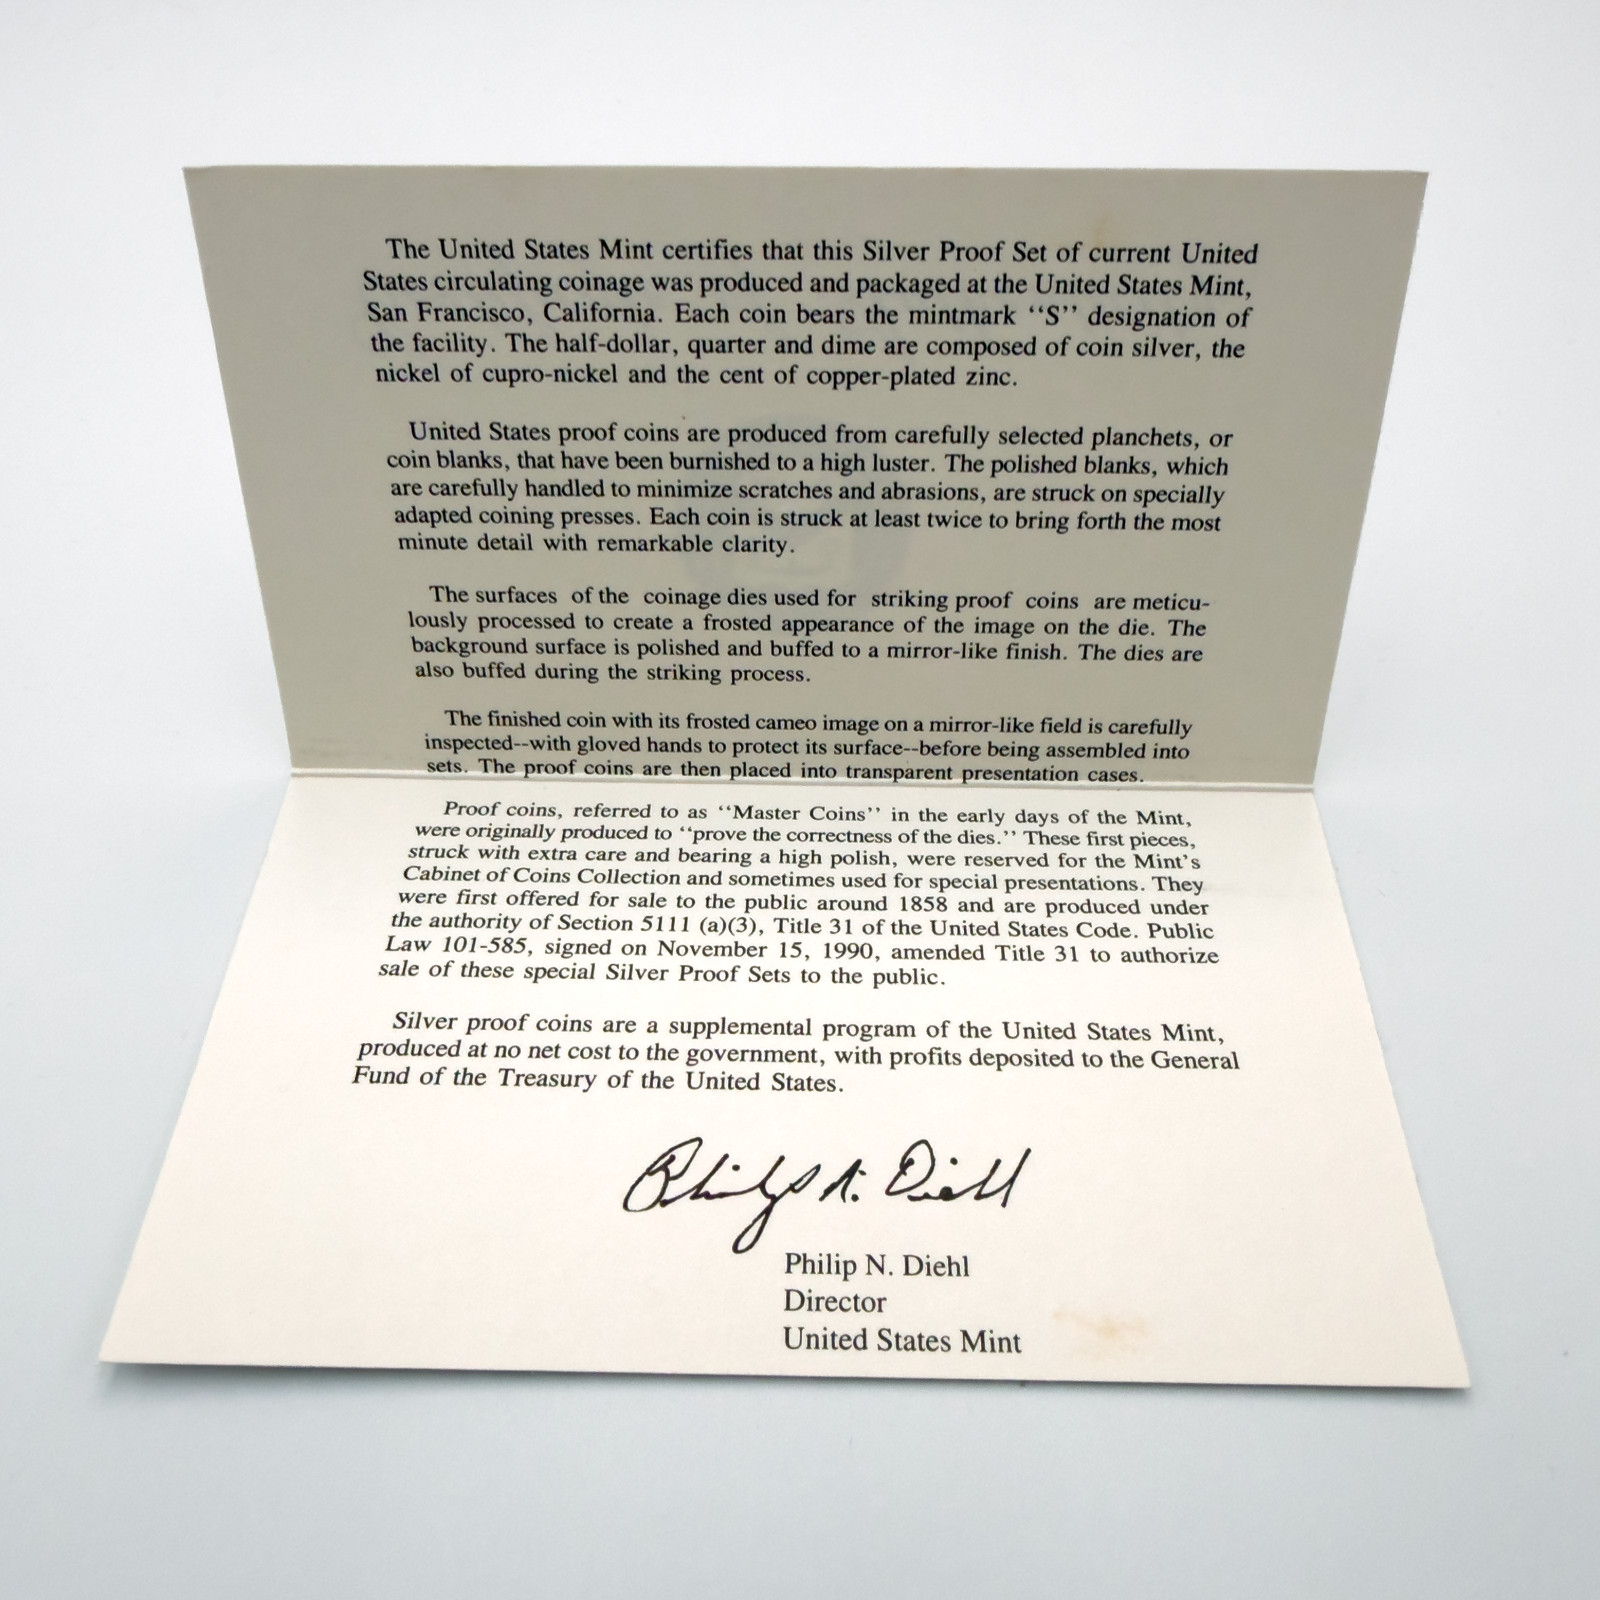 The United States Mint certifies that this Silver Proof Set of current United
States circulating coinage was produced and packaged at the United States Mint,
San Francisco, California. Each coin bears the mintmark ‘‘S’’ designation of
the facility. The half-dollar, quarter and dime are composed of coin silver, the
nickel of cupro-nickel and the cent of copper-plated zinc.
United States proof coins are produced from carefully selected planchets, or
coin blanks, that have been burnished to a high luster. The polished blanks, which
are carefully handled to minimize scratches and abrasions, are struck on specially
adapted coining presses. Each coin is struck at least twice to bring forth the most
minute detail with remarkable clarity.
The surfaces of the coinage dies used for striking proof coins are meticu-
lously processed to create a frosted appearance of the image on the die. The
background surface is polished and buffed to a mirror-like finish. The dies are
also buffed during the striking process.
The finished coin with its frosted cameo image on a mirror-like field is carefully
inspected--with gloved hands to protect its surface--before being assembled into
sets. The proof coins are then placed into transparent presentation cases.
Proof coins, referred to as ‘‘Master Coins’’ in the early days of the Mint,
were originally produced to ‘‘prove the correctness of the dies.’’ These first pieces,
struck with extra care and bearing a high polish, were reserved for the Mint’s
Cabinet of Coins Collection and sometimes used for special presentations. They
were first offered for sale to the public around 1858 and are produced under
the authority of Section 5111 (a)(3), Title 31 of the United States Code. Public
Law 101-585, signed on November 15, 1990, amended Title 31 to authorize
sale of these special Silver Proof Sets to the public.
Silver proof coins are a supplemental program of the United States Mint,
produced at no net cost to the government, with profits deposited to the General
Fund of the Treasury of the United States.
Philip N. Diehl
Philip N. Diehl
Director
United States Mint